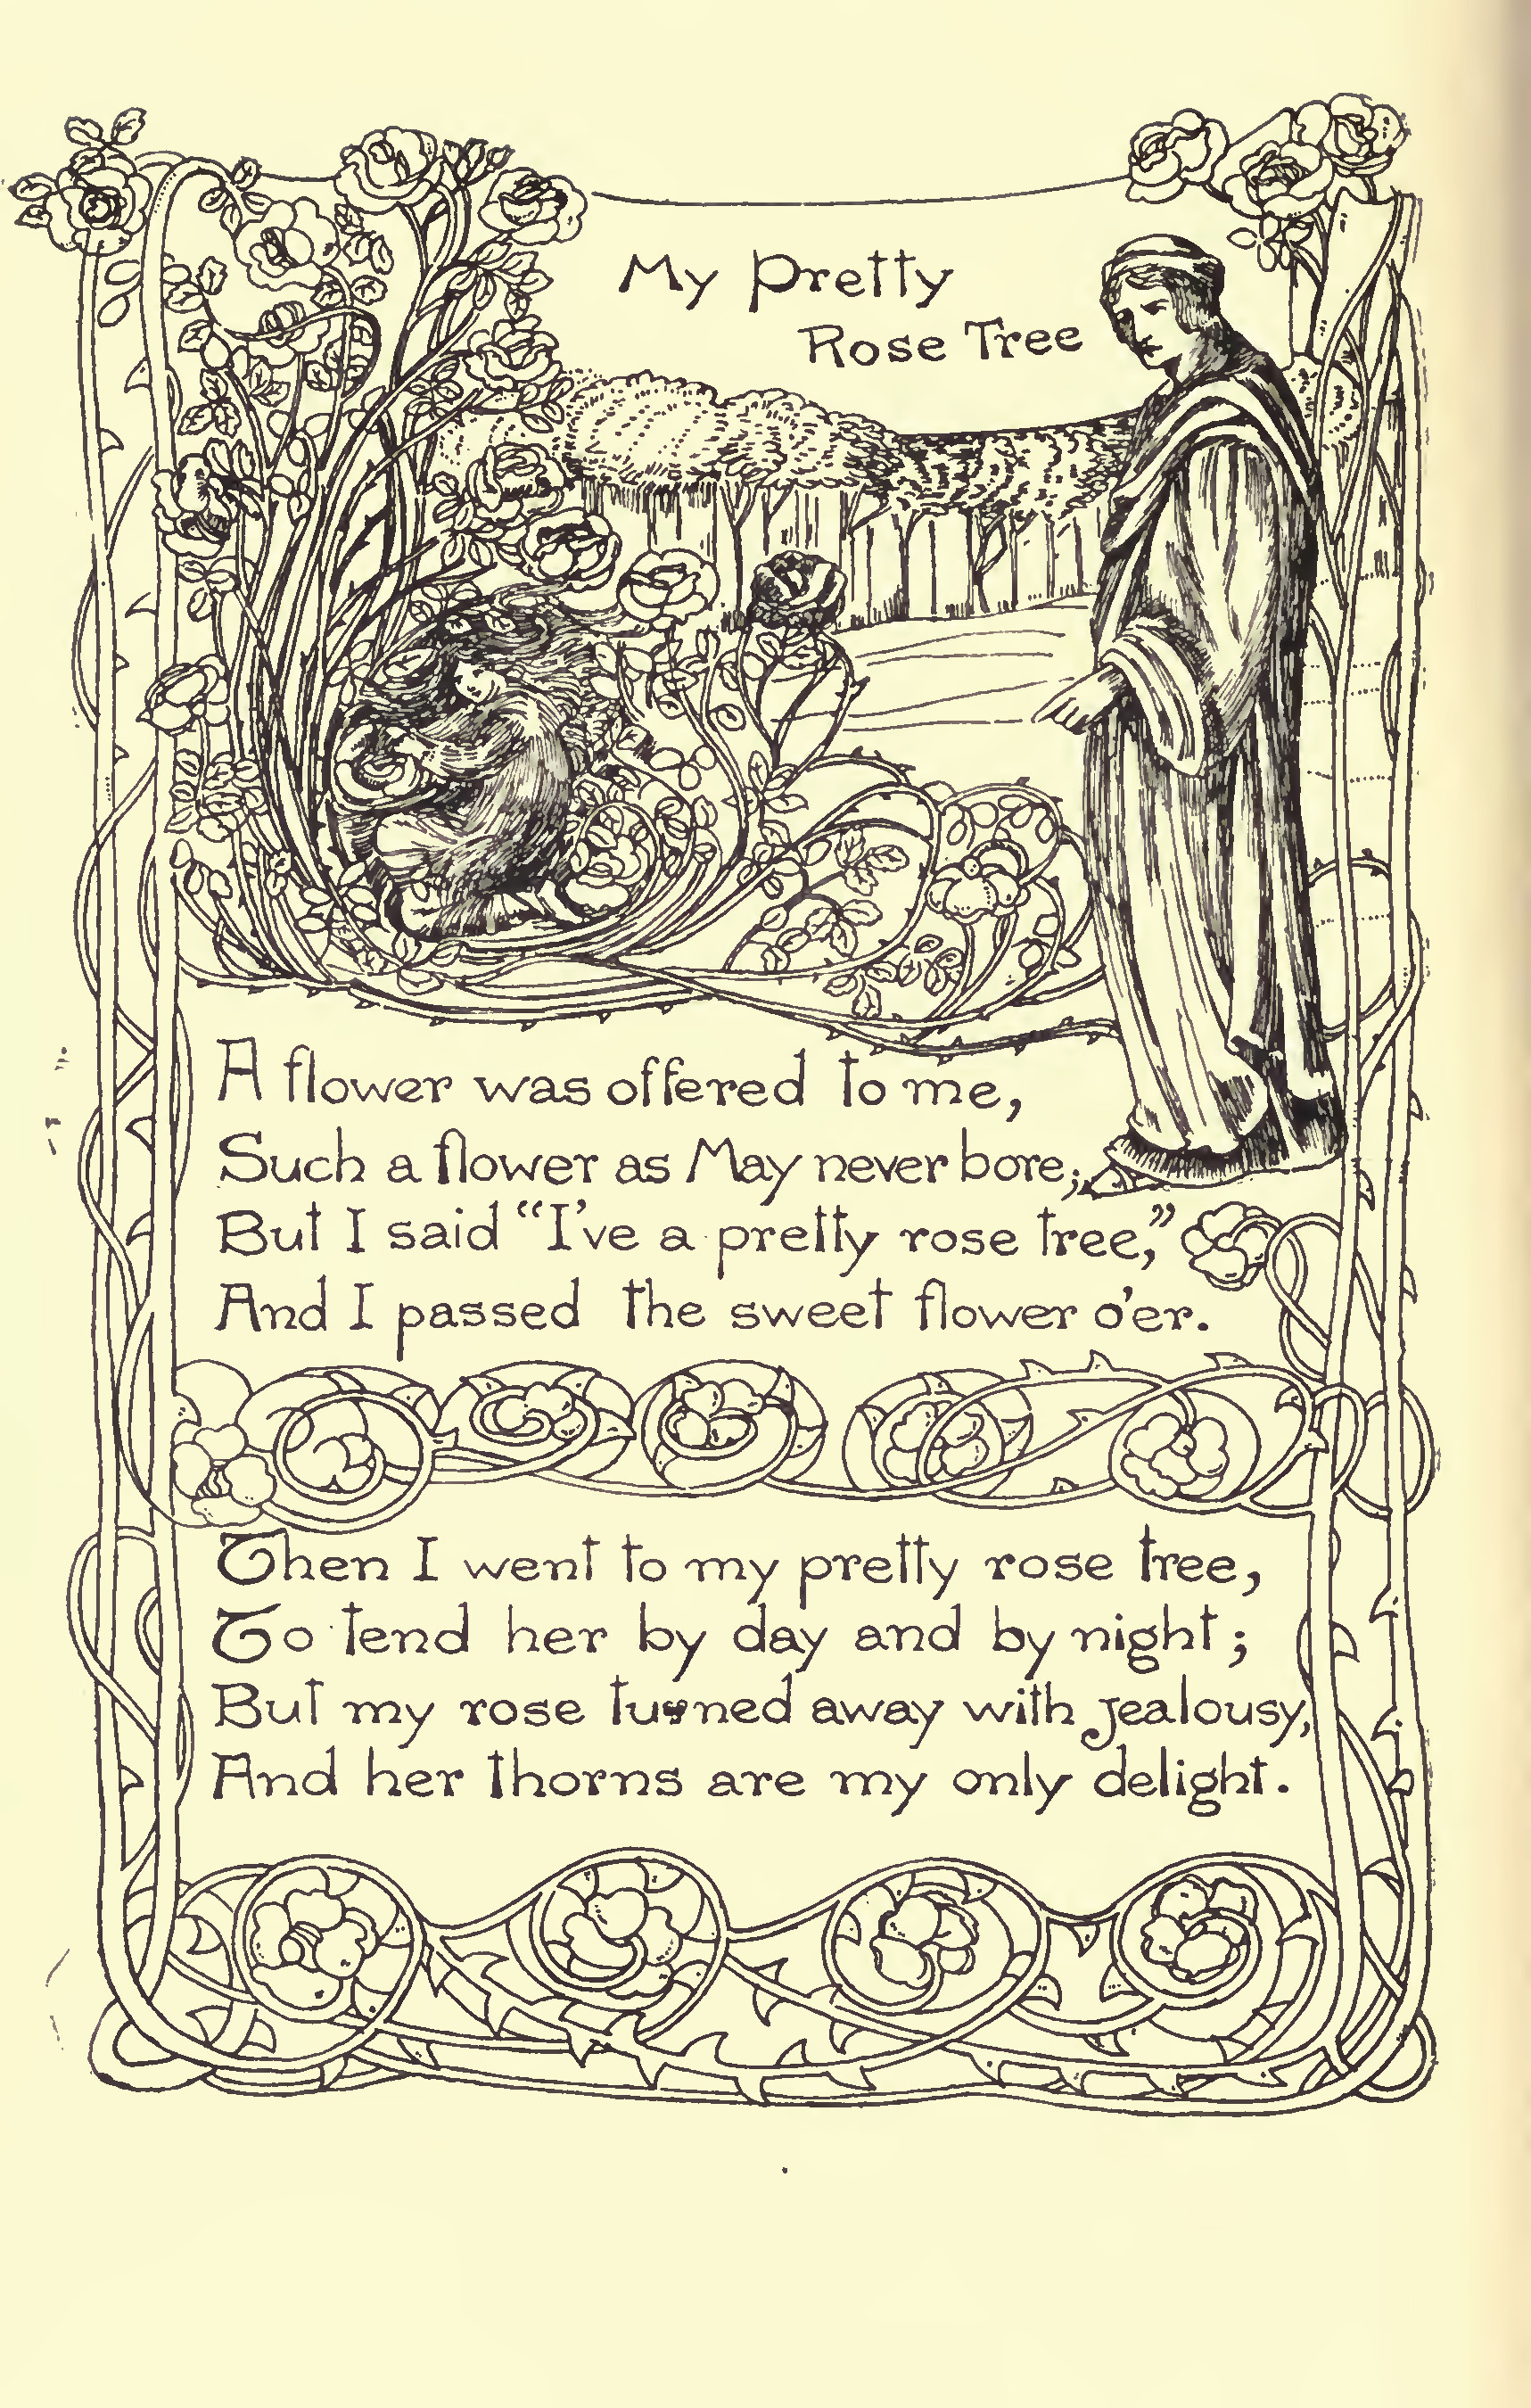 My Pretty
Rose Tree
A flower was offered to me,
Such a flower as May never bore;
But I said “I've a pretty rose tree,”
And I passed the sweet flower o'er.
Then I went to my pretty rose tree,
To tend her by day and by night;
But my rose turned away with jealousy,
And her thorns are my only delight.